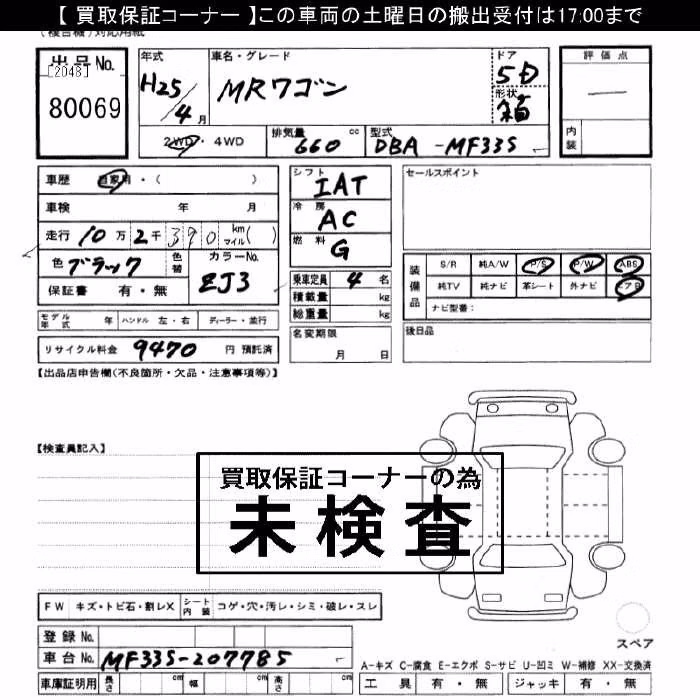 【 買取保証コーナー 】この車両の土曜日の搬出受付は17:00まで
(複合機)対応用紙
出品No.
[2048]
80069
年式
H25/4月
車名・グレード
MRワゴン
ドア
5D
形状
箱
評価点
内装
2WD・4WD
排気量 660 cc
型式 DBA-MF33S
車歴 自家用・( )
車検 年 月
走行 10万2千390 km マイル( )
色 ブラック 色替 カラーNo. ZJ3
保証書 有・無
シフト IAT
冷房 AC
燃料 G
乗車定員 4 名
積載量 kg
総重量 kg
名変期限 月 日
セールスポイント
装備品
S/R 純A/W P/S P/W ABS
純TV 純ナビ 革シート 外ナビ エアB
ナビ型番:
後日品
モデル年式 年 ハンドル 左・右 ディーラー・並行
リサイクル料金 9470 円 預託済
【出品店申告欄(不良箇所・欠品・注意事項等)】
【検査員記入】
買取保証コーナーの為
未検査
FW キズ・トビ石・割レX シート内装 コゲ・穴・汚レ・シミ・破レ・スレ
登録No.
車台No. MF33S-207785
車庫証明用 長さ cm 幅 cm 高さ cm
スペア
A-キズ C-腐食 E-エクボ S-サビ U-凹ミ W-補修 XX-交換済
工具 有・無 ジャッキ 有・無